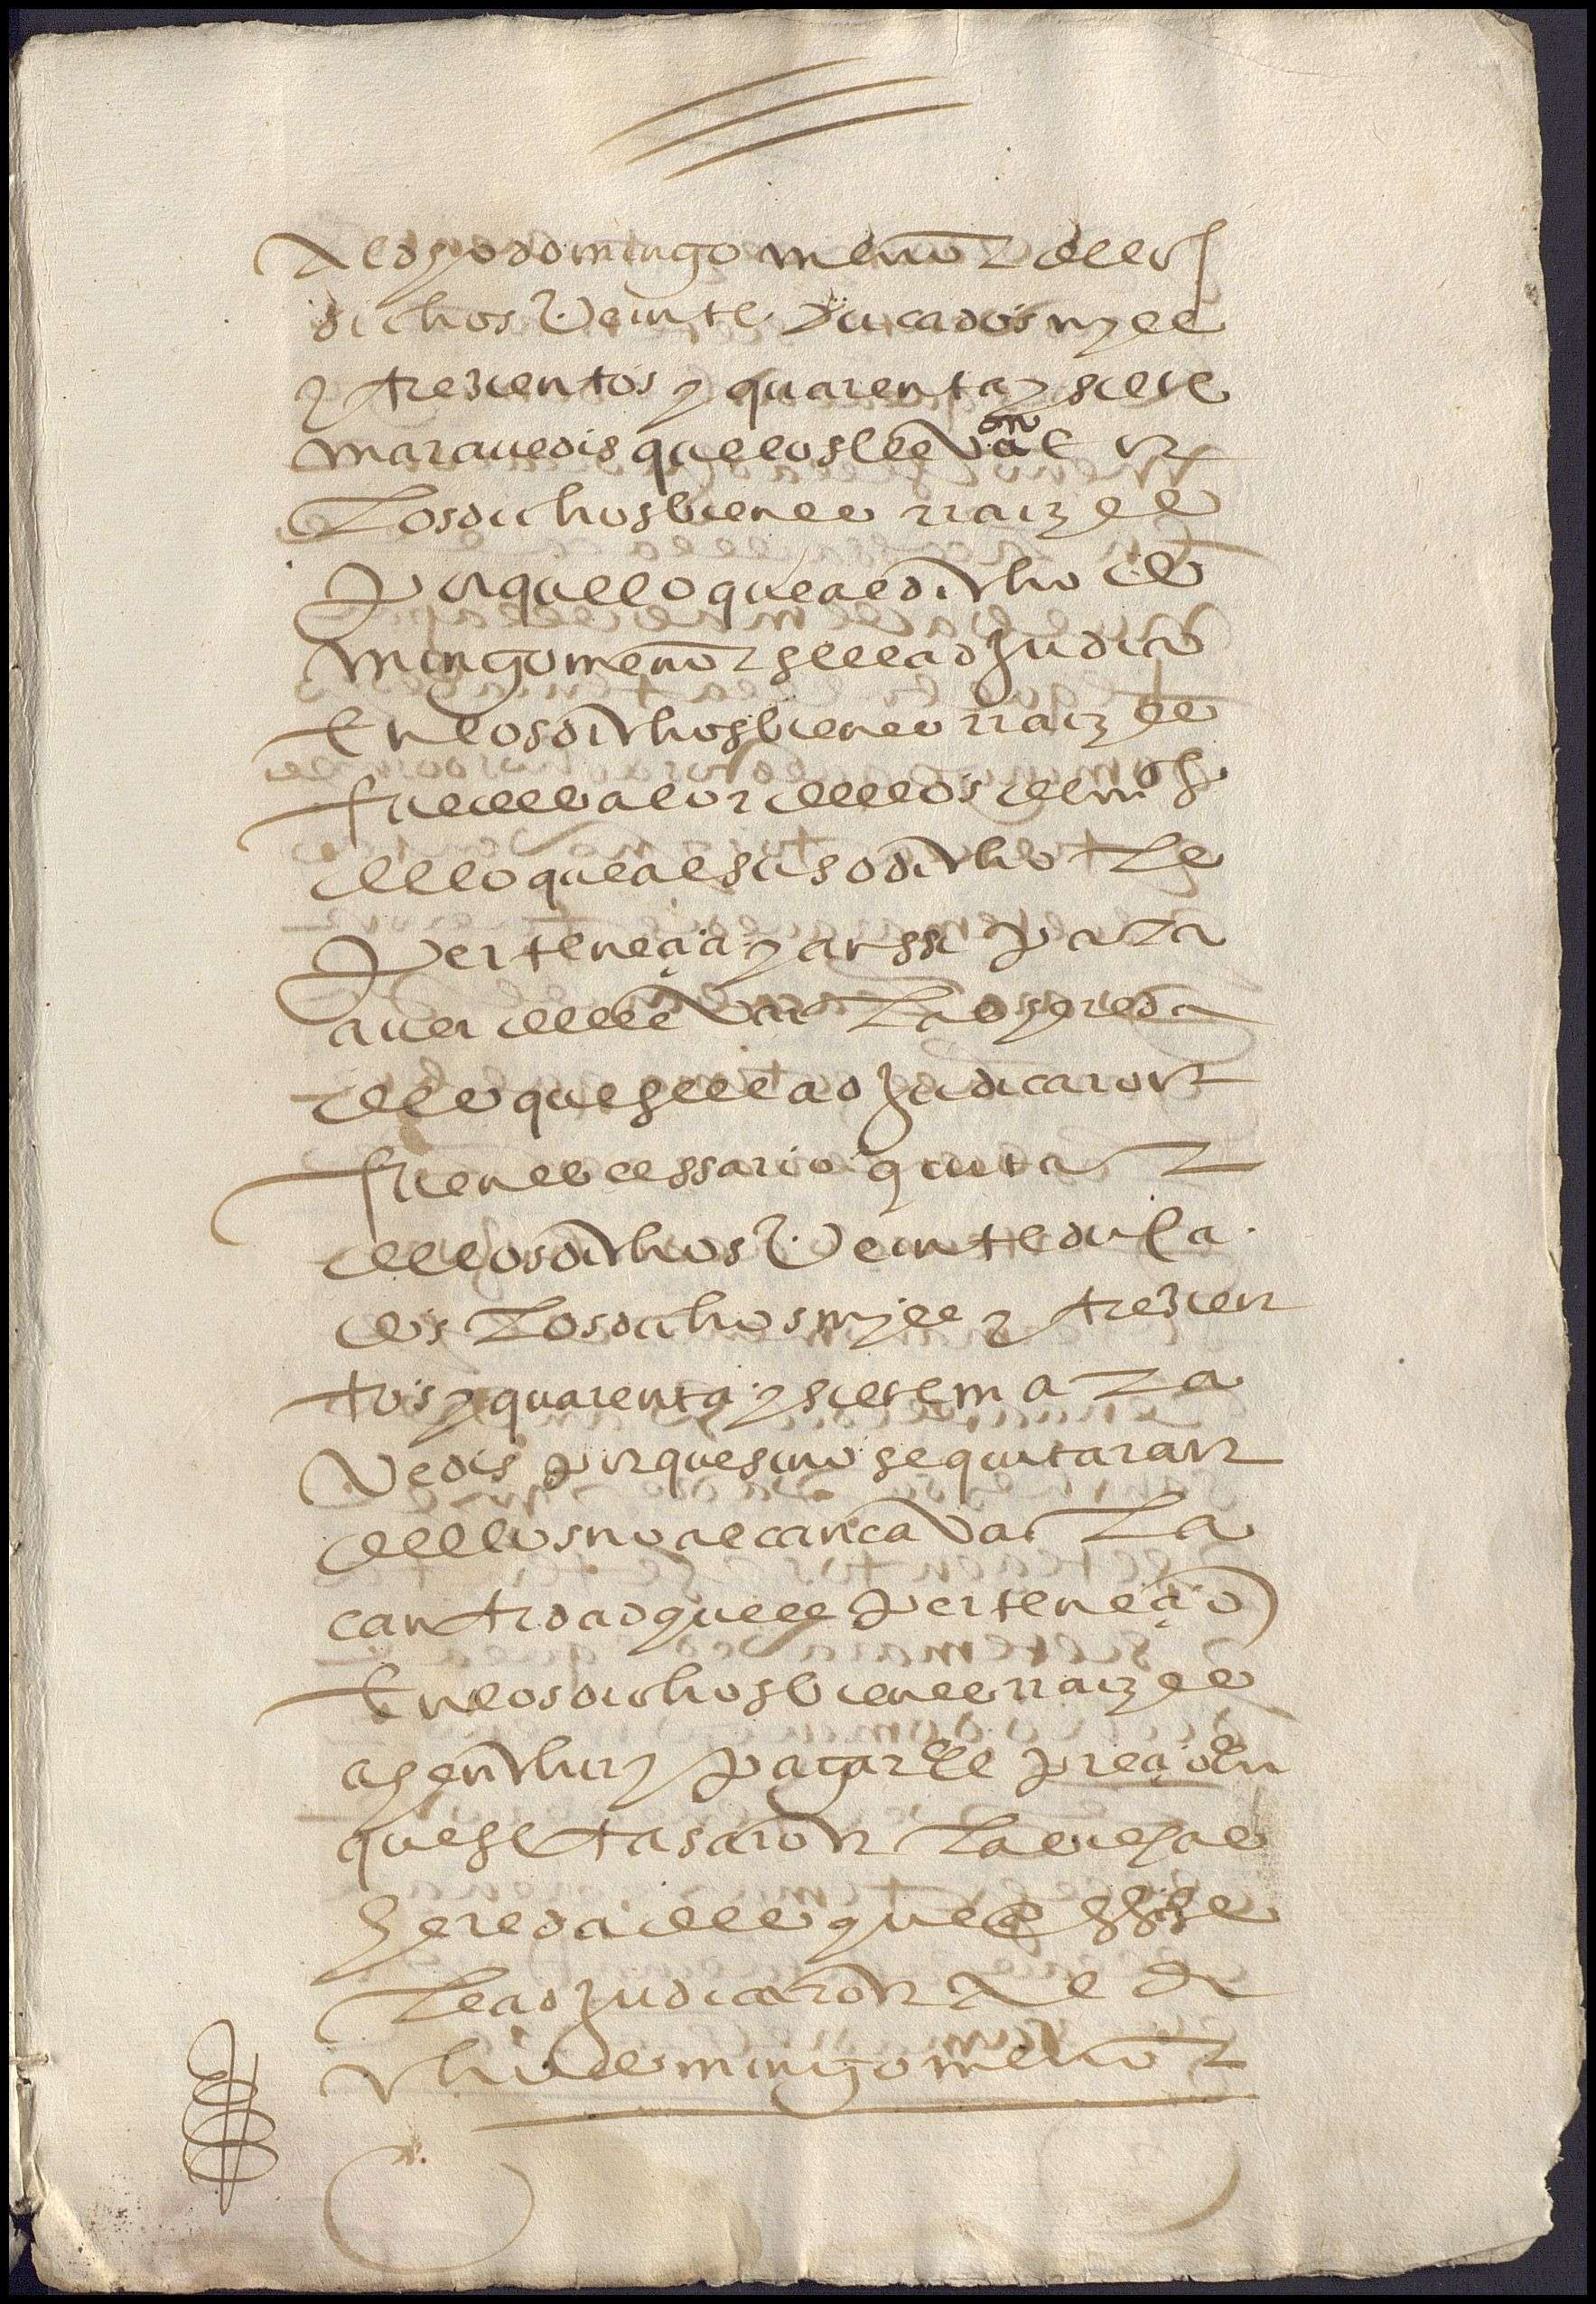 al dho domingo menor de los
dichos veinte ducados myll
y trezientos y quarenta y siete
maravedis que los lleva en
los dichos bienes rraizes
porque lo que al dicho do
mingo menor se le adjudico
en los dichos bienes rraizes
fue de valor de los de mas
de lo que al susodicho le
perteneçia y anssi para
aver de llevar la heredad
de lo que se le adjudicaron
fue neccessario quitar
de los dichos veinte duca
dos los dichos myll y trezien
tos y quarenta y siete mara
vedis porque si no se quitaran
dellos no alcancava la
cantidad que le perteneçio
en los dichos bienes rraizes
a henchir y pagar el preçio en
que se tasaron las viejas
heredades que assi se
le adjudicaron al di
cho domingo menor